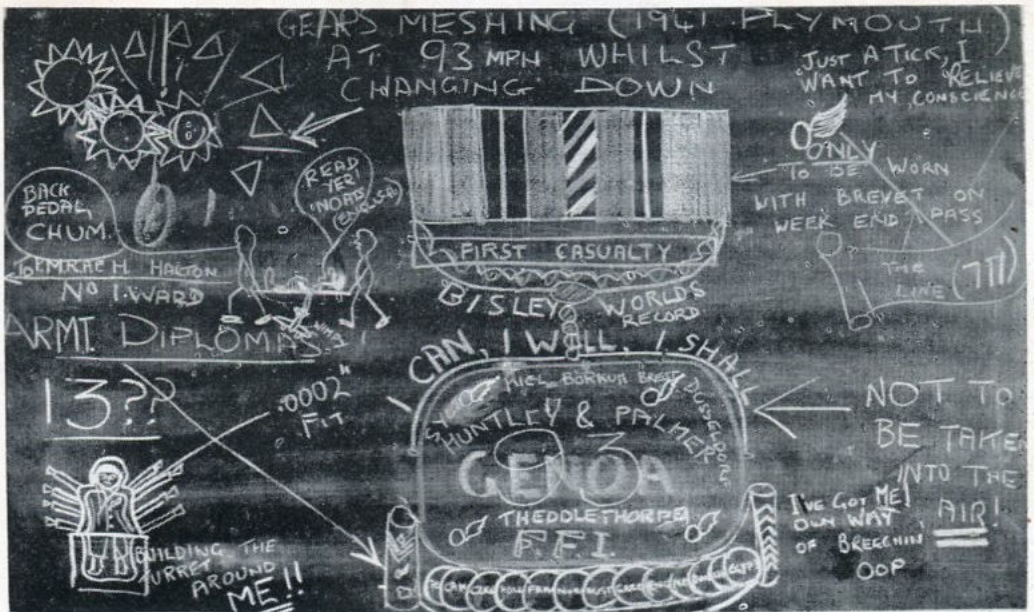 GEARS MESHING (1941 PLYMOUTH)
AT 93 MPH WHILST
CHANGING DOWN
JUST A TICK, I
WANT TO RELIEVE
MY CONSCIENCE
ONLY
TO BE WORN
WITH BREVET ON
WEEK END PASS
THE
LINE
BACK
PEDAL
CHUM.
READ
YER!
(ENGLISH)
TO EMRAE H. HALTON
No 1. WARD
FIRST CASUALTY
BISLEY WORLDS
RECORD
ARMT. DIPLOMAS.
13??
.0002"
FIT
CAN, I WILL, I SHALL
KIEL BORKUM BREST DUSSELDORF
HUNTLEY & PALMERS
GENOA
THEDDLETHORPE
F.F.I.
NOT TO
BE TAKE
INTO THE
AIR!
I'VE GOT ME
OWN WAY
OF BREECHIN
OOP
BUILDING THE
TURRET
AROUND
ME!!